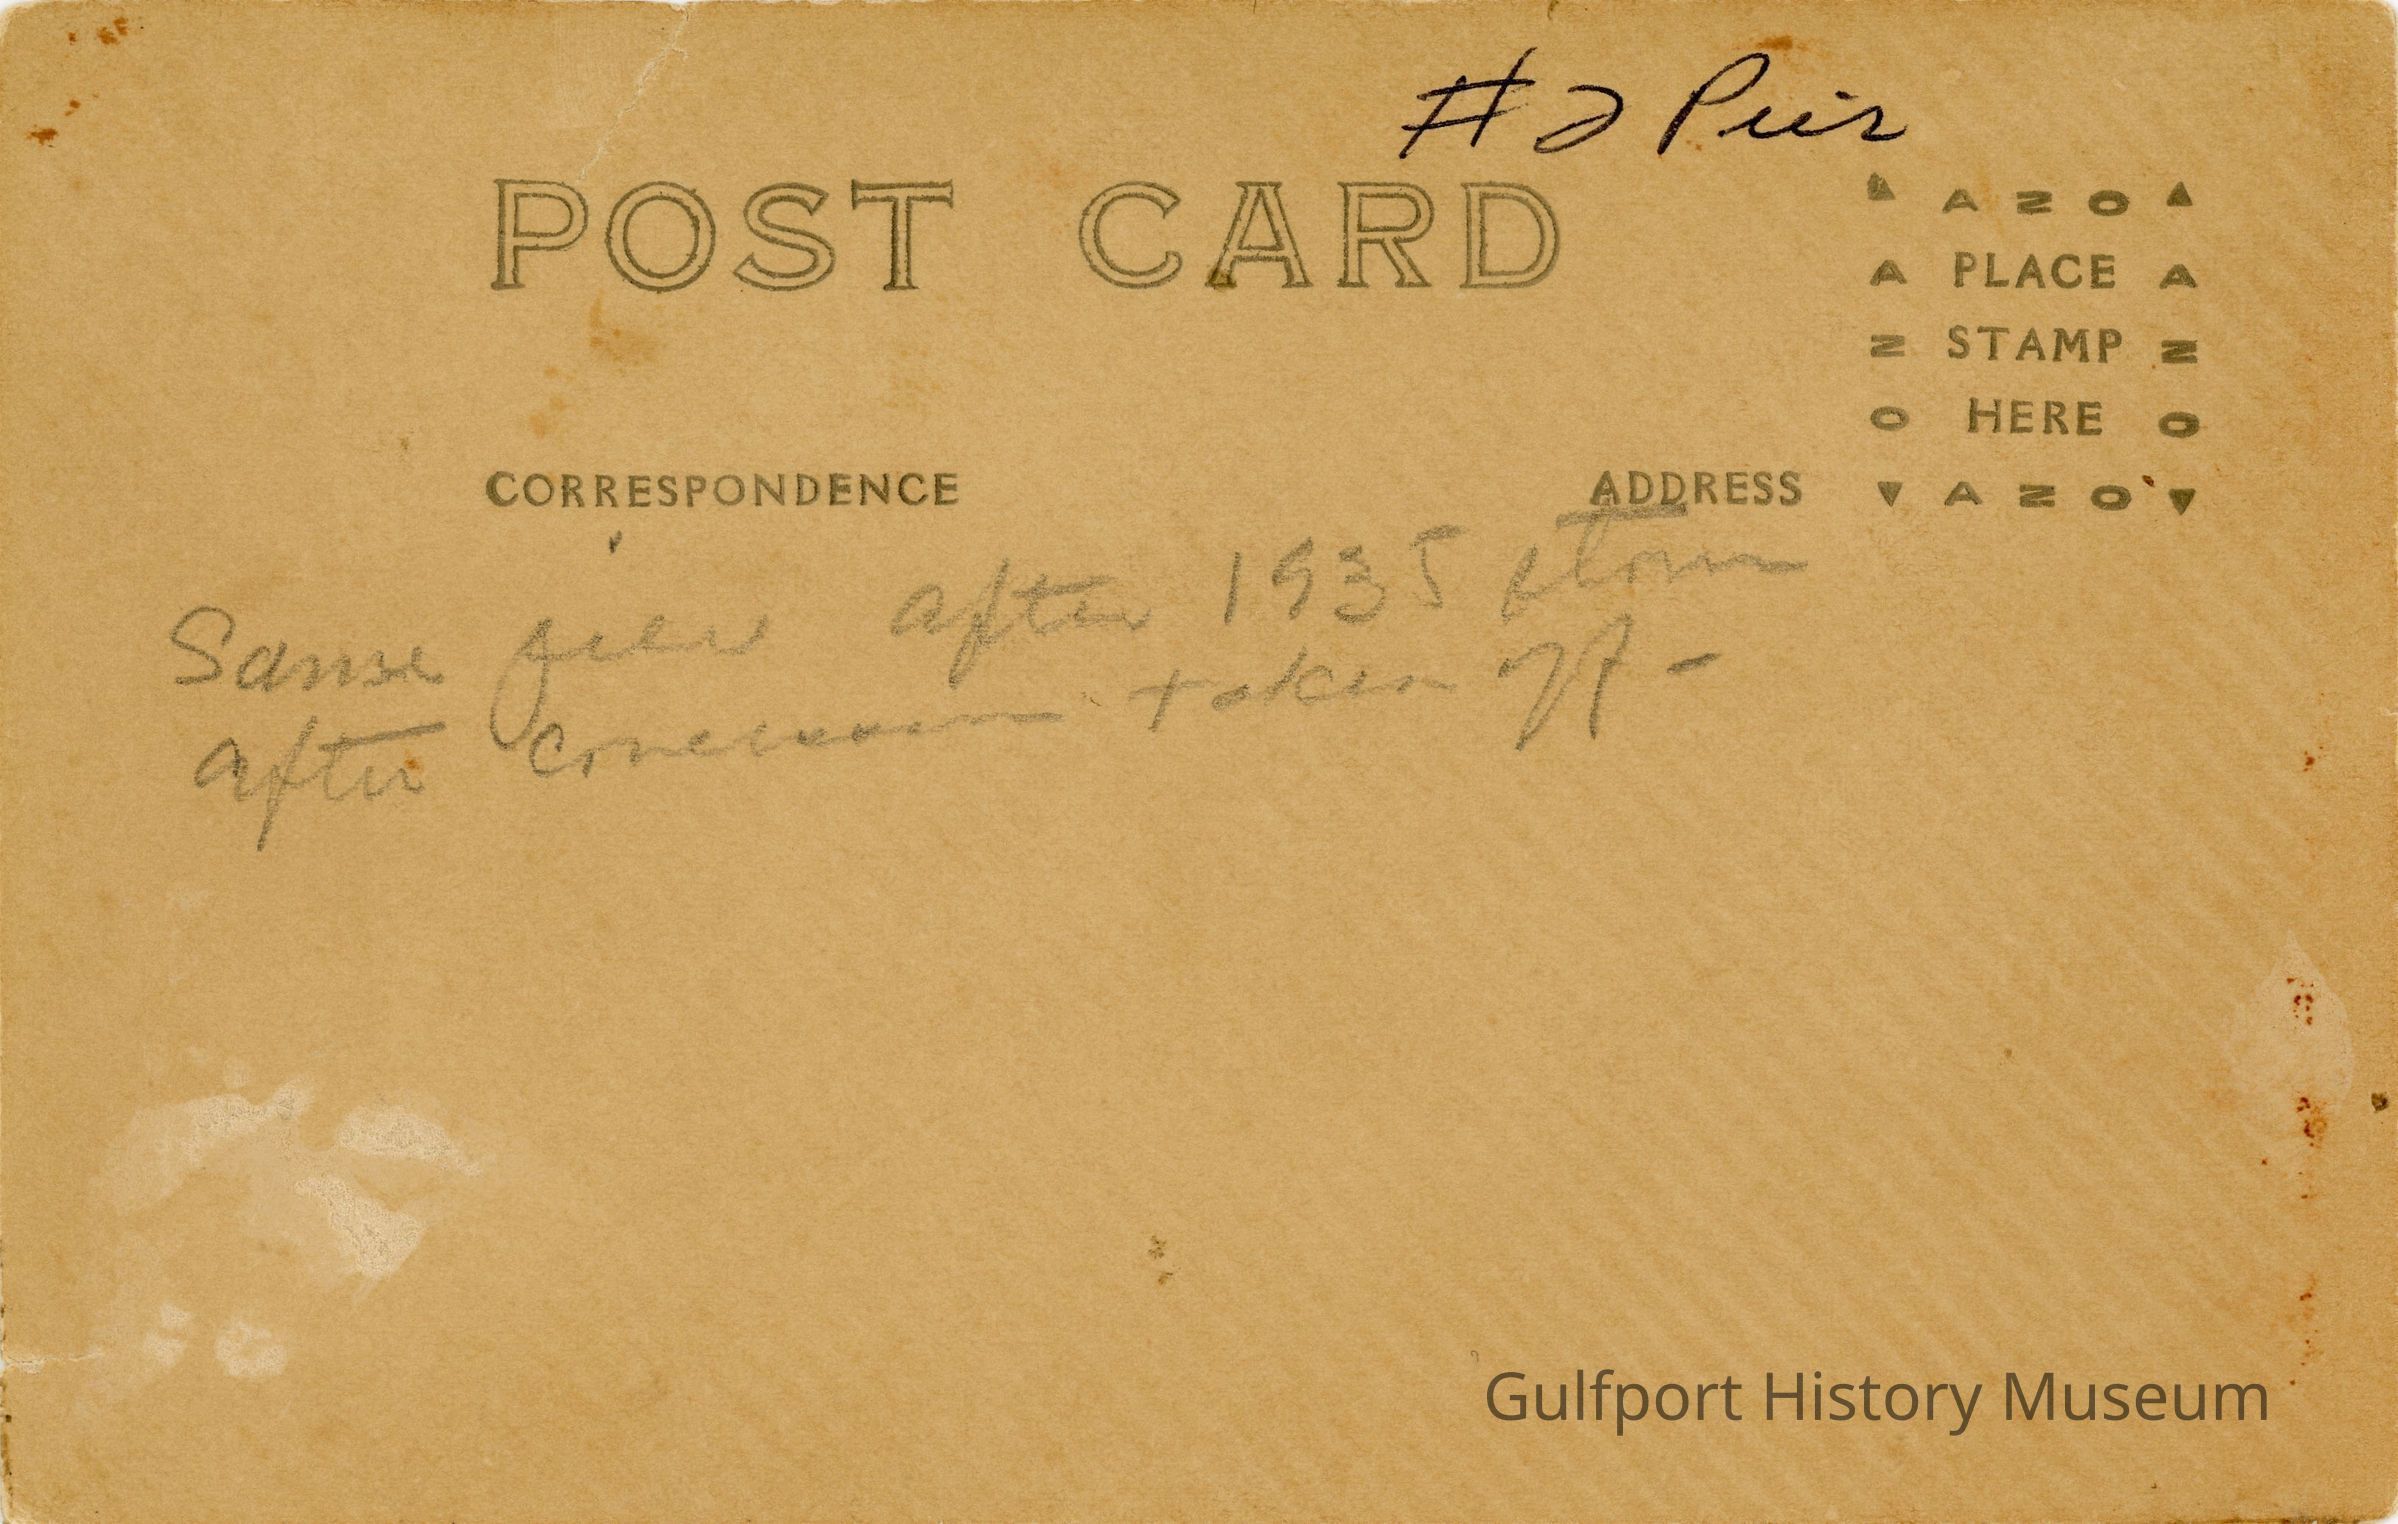 #2 Pier
POST CARD
AZO
PLACE
STAMP
HERE
AZO
AZO
AZO
CORRESPONDENCE
ADDRESS
Same pier after 1935 storm
after taken off -
Gulfport History Museum